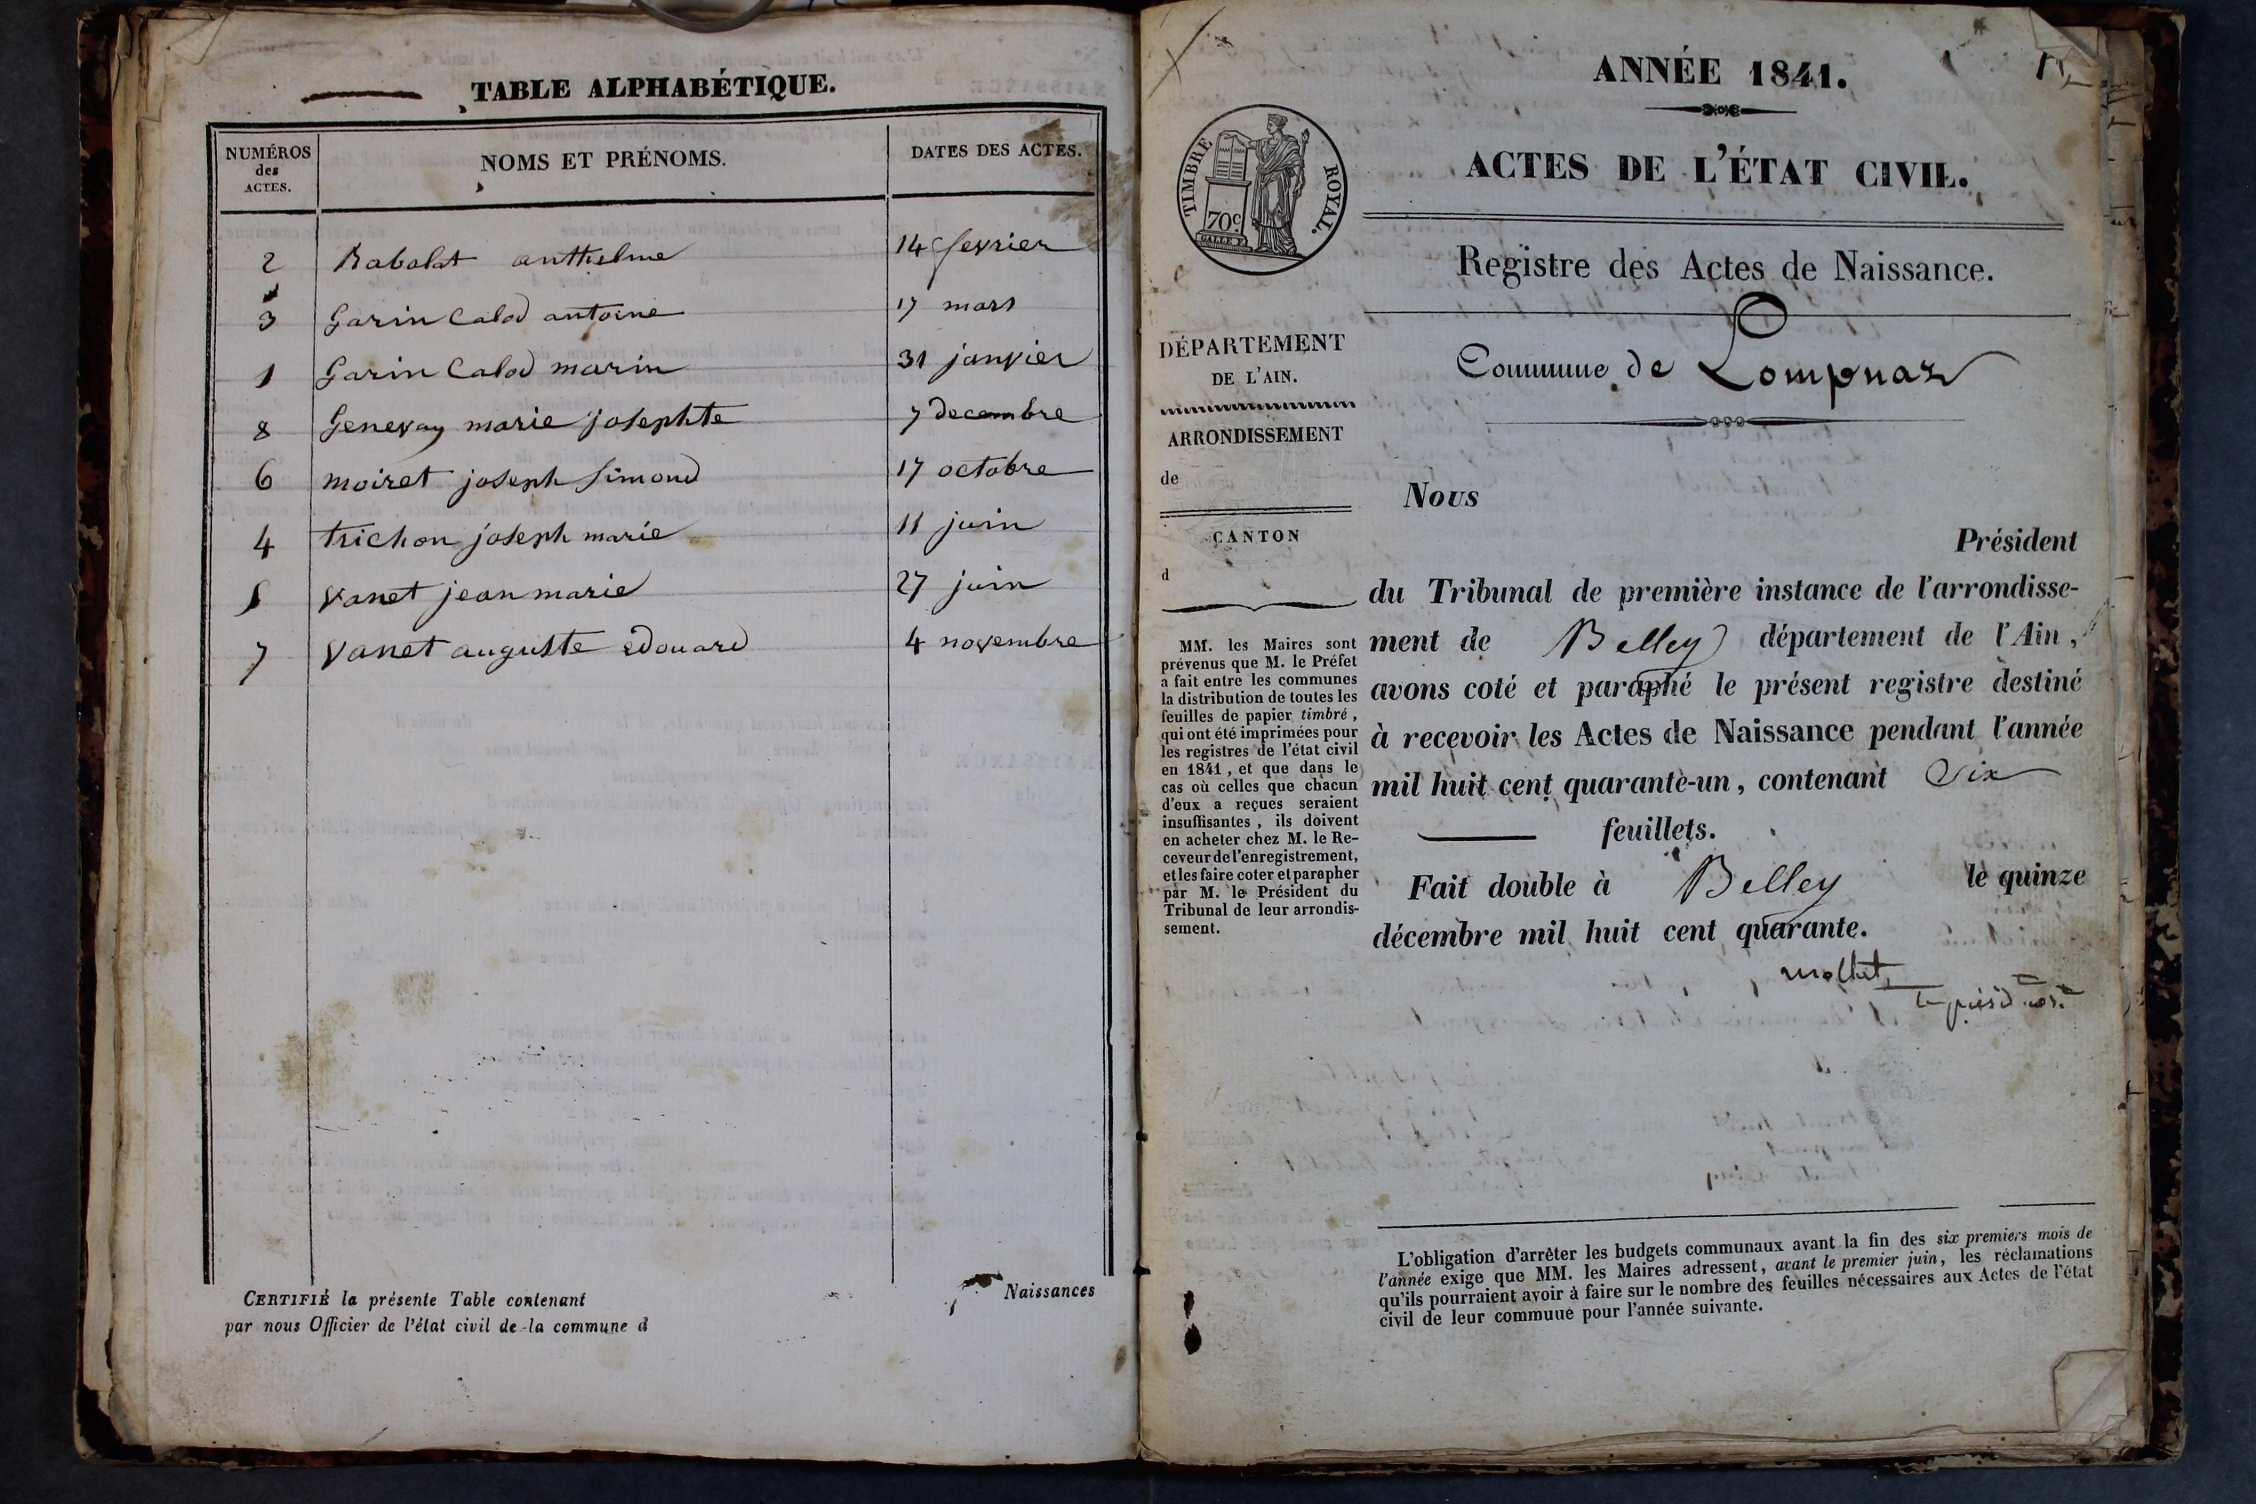 TABLE ALPHABÉTIQUE.
NUMÉROS des ACTES. NOMS ET PRÉNOMS. DATES DES ACTES.
2 Rabolat anthelme 14 fevrier
3 Garin Calod antoine 17 mars
1 Garin Calod marin 31 janvier
8 Genevay marie josephte 7 decembre
6 moiret joseph simond 17 octobre
4 trichon joseph marie 11 juin
5 vanet jean marie 27 juin
7 vanet auguste edouard 4 novembre
CERTIFIÉ la présente Table contenant Naissances
par nous Officier de l'état civil de la commune d
ANNÉE 1841.
TIMBRE ROYAL.
70c
ACTES DE L'ÉTAT CIVIL.
Registre des Actes de Naissance.
Commune de Lompnaz
DÉPARTEMENT
DE L'AIN.
ARRONDISSEMENT
de
CANTON
d
MM. les Maires sont
prévenus que M. le Préfet
a fait entre les communes
la distribution de toutes les
feuilles de papier timbré,
qui ont été imprimées pour
les registres de l'état civil
en 1841, et que dans le
cas où celles que chacun
d'eux a reçues seraient
insuffisantes, ils doivent
en acheter chez M. le Re-
ceveur de l'enregistrement,
et les faire coter et parapher
par M. le Président du
Tribunal de leur arrondis-
sement.
Nous
Président
du Tribunal de première instance de l'arrondisse-
ment de Belley département de l'Ain,
avons coté et paraphé le présent registre destiné
à recevoir les Actes de Naissance pendant l'année
mil huit cent quarante-un, contenant Six
feuillets.
Fait double à Belley le quinze
décembre mil huit cent quarante.
L'obligation d'arrêter les budgets communaux avant la fin des six premiers mois de
l'année exige que MM. les Maires adressent, avant le premier juin, les réclamations
qu'ils pourraient avoir à faire sur le nombre des feuilles nécessaires aux Actes de l'état
civil de leur commune pour l'année suivante.